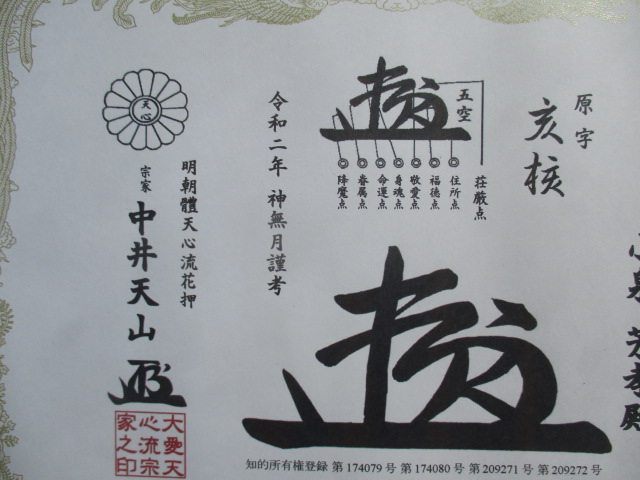 原字
亥核
五空
荘厳点
住所点
福徳点
敬愛点
身魂点
命運点
眷属点
降魔点
令和二年 神無月謹考
明朝體天心流花押
宗家
中井天山
天心
大愛天
心流宗
家之印
知的所有権登録 第174079号 第174080号 第209271号 第209272号